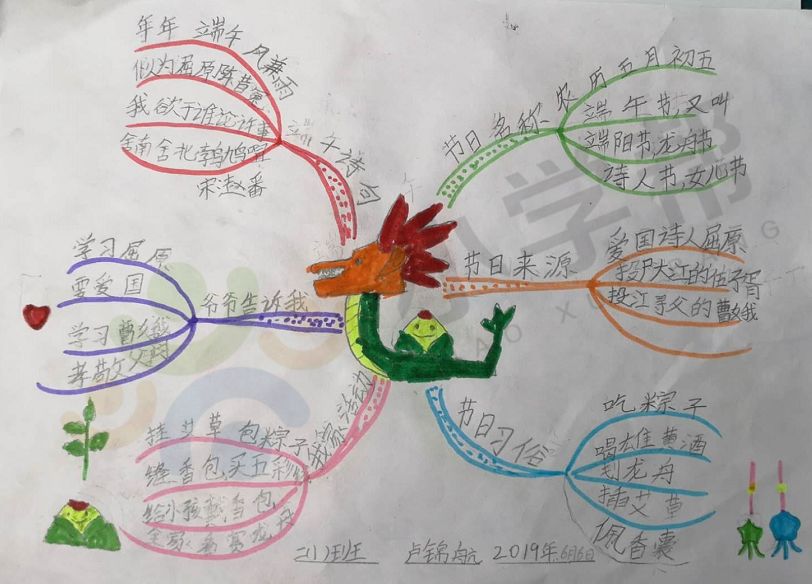 年年端午风兼雨
似为屈原陈昔冤
我欲于谁论许事
舍南舍北鹁鸠喧
宋 赵蕃
端午诗句
节日名称
农历五月初五
端午节,又叫
端阳节,龙舟节
诗人节,女儿节
节日来源
爱国诗人屈原
投尸大江的伍子胥
投江寻父的曹娥
节日习俗
吃粽子
喝雄黄酒
划龙舟
插艾草
佩香囊
我家活动
挂艾草 包粽子
缝香包买五彩线
给小孩戴香包
全家看赛龙舟
爷爷告诉我
学习屈原
要爱国
学习曹娥
孝敬父母
卢锦航 2019年6月6日
小学帮